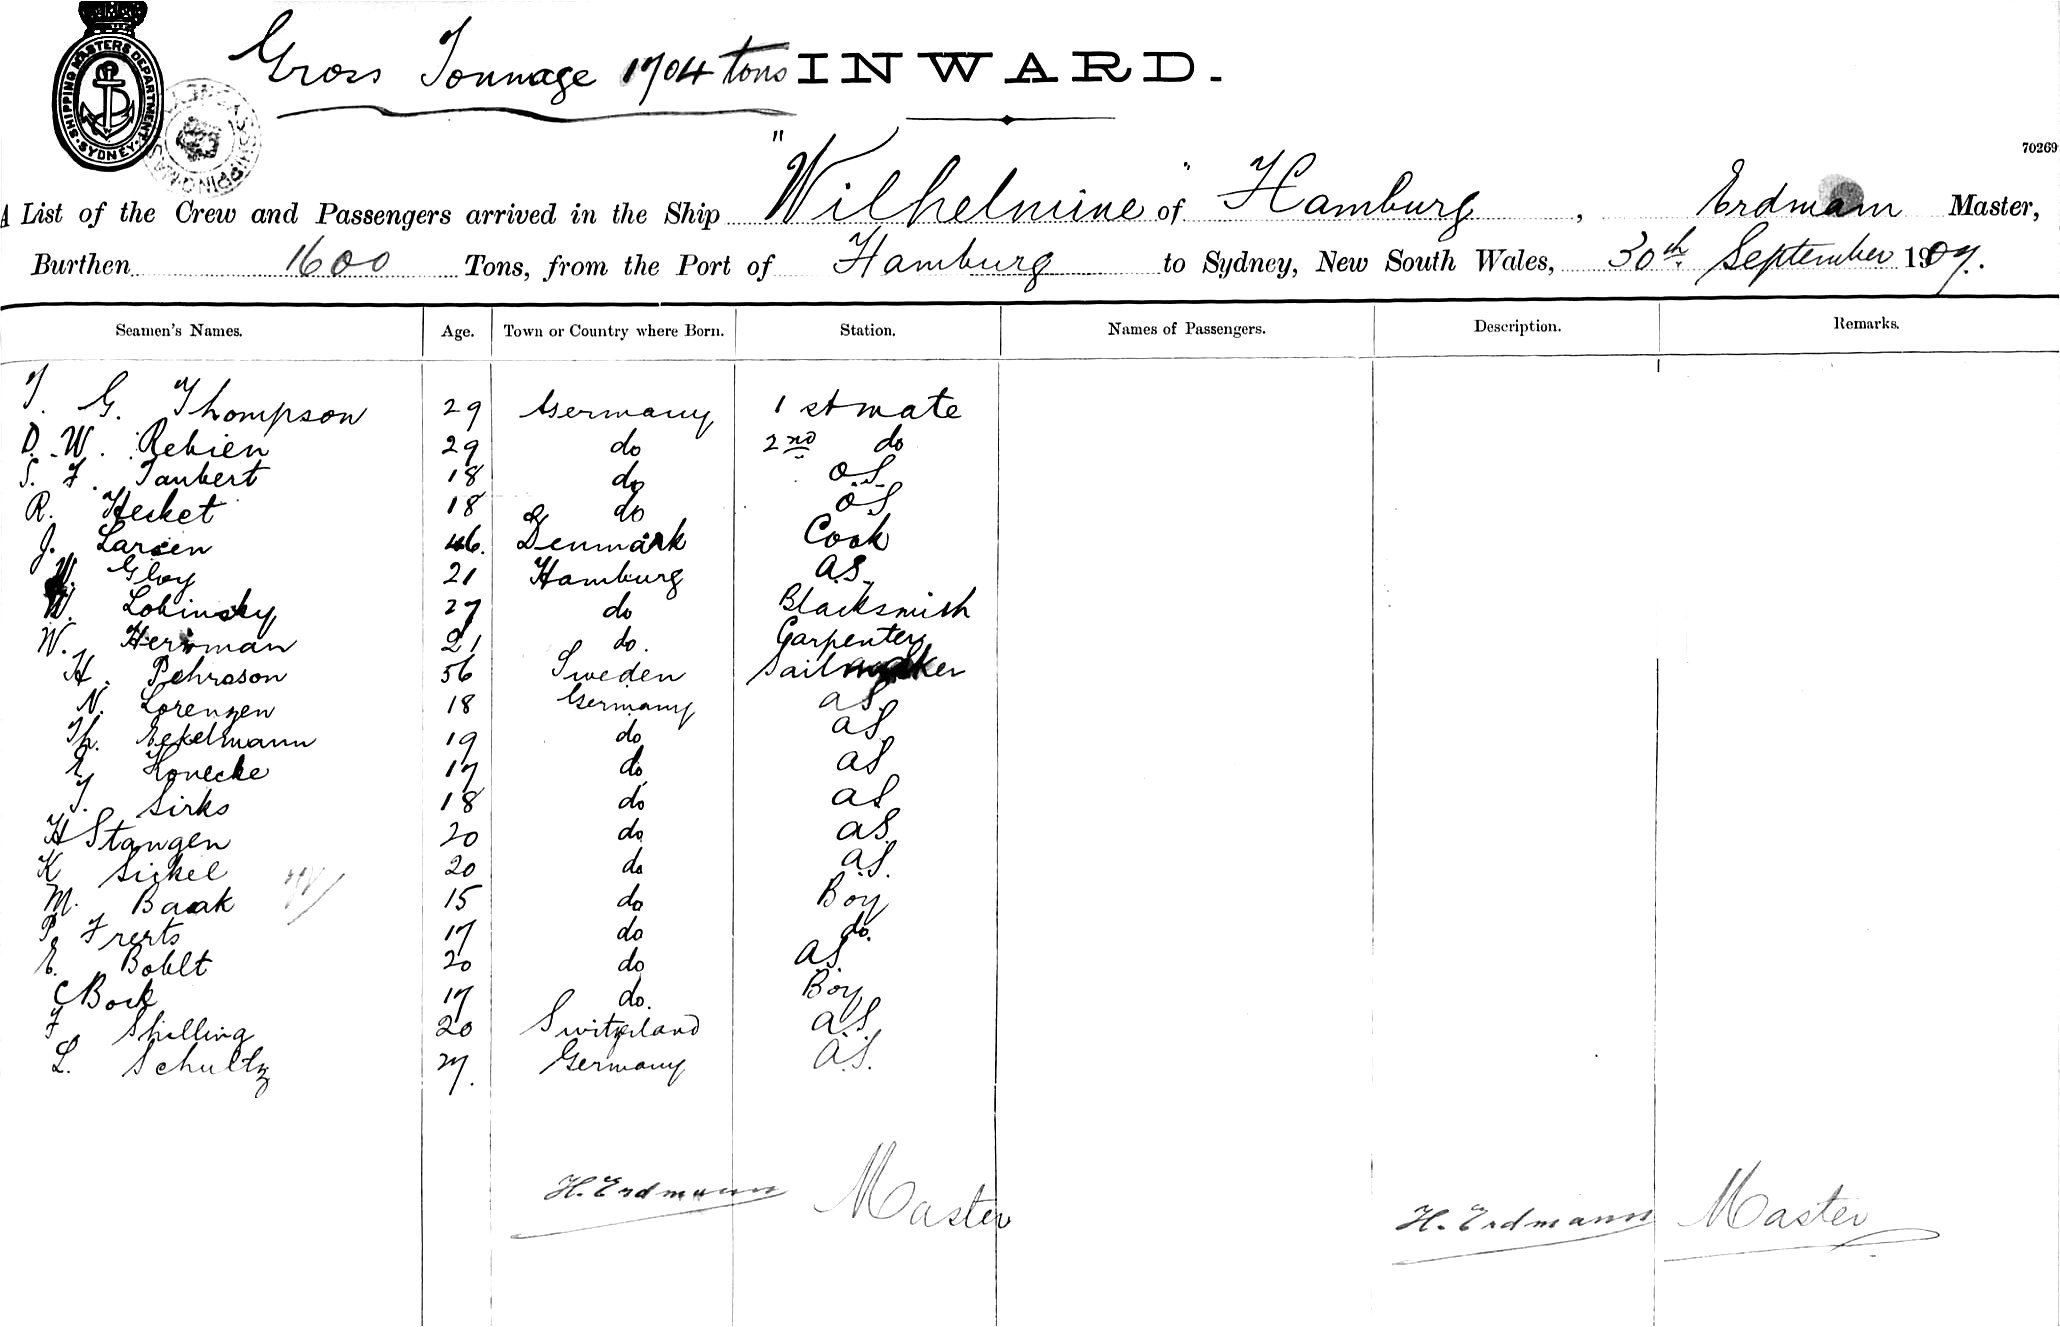 SHIPPING MASTERS DEPARTMENT. SYDNEY.
Gross Tonnage 1704 tons INWARD.
70269
A List of the Crew and Passengers arrived in the Ship "Wilhelmine" of Hamburg, Erdmann Master,
Burthen 1600 Tons, from the Port of Hamburg to Sydney, New South Wales, 30th September 1907.
Seamen's Names. Age. Town or Country where Born. Station. Names of Passengers. Description. Remarks.
T. G. Thompson 29 Germany 1st mate
D. W. Rebien 29 do 2nd do
S. F. Taubert 18 do O.S.
R. Hecket 18 do OS
J. Larsen 46. Denmark Cook
W. Gloy 21 Hamburg A.S.
W. Lobinsky 27 do Blacksmith
W. Herrman 21 do. Carpenter
H. Pehrsson 56 Sweden Sailmaker
N. Lorenzen 18 Germany AS
Th. Eekelmann 19 do AS
Honecke 17 do AS
T. Sirks 18 do AS
H Stangen 20 do AS
K Sickel 20 do A.S.
M. Baak 15 do Boy
P. Frerts 17 do do.
E. Boldt 20 do AS
C Bock 17 do. Boy
F Shilling 20 Switzerland A.S.
L. Schultz 27. Germany A.S.
H. Erdmann Master H. Erdmann Master